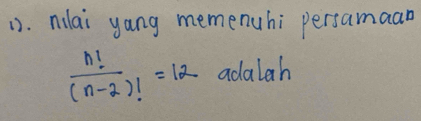 1). nilai yang memenuhi persamaan
n!/(n-2)! = 12 adalah